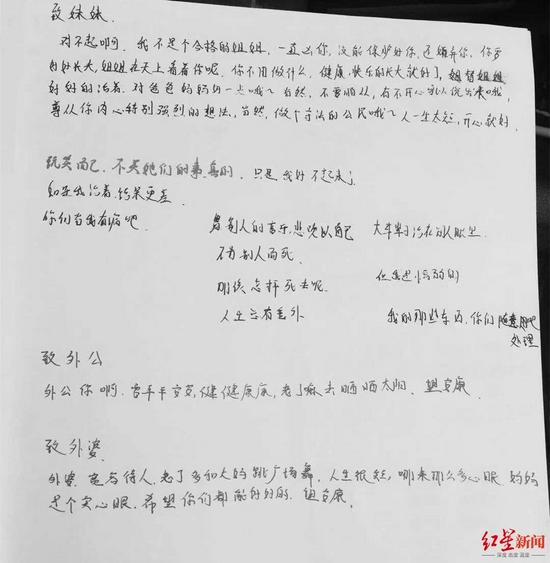 致妹妹.
对不起啊. 我不是个合格的姐姐, 一直凶你, 没能保护好你, 还嫌弃你. 你要
好好长大, 姐姐在天上看着你呢. 你不用做什么, 健康快乐的长大就好了, 姐替姐姐
好好的活着. 对爸爸妈妈好一点哦~ 当然, 不要顺从, 有不开心可以说出来哦,
尊从你内心特别强烈的想法, 当然, 做个守法的公民哦~ 人一生太短, 开心就好.
玩笑而已. 不关她们的事, 真的. 只是我好不起来了
如果我活着, 结果更差
你们当我有病吧
为别人的喜乐, 悲欢以自己
不为别人而死
那该怎样死去呢.
人生总有意外
大半辈子活在别人
但
我的那些东西, 你们随意吧
处理
致外公
外公你啊. 平平安安, 健健康康, 老了嘛去晒晒太阳. 安康
致外婆.
外婆 待人, 老了多和大妈跳广场舞. 人生很短, 哪来那么多心眼 妈妈
是个实心眼. 希望你们都能好好的. 安康.
红星新闻
深度 态度 温度